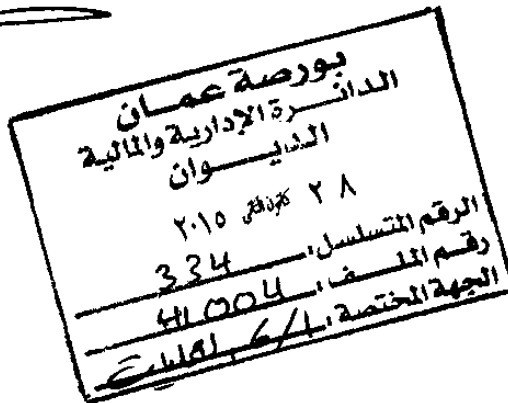 بورصة عمان
الدائرة الإدارية والمالية
الديوان
٢٨ كانون الثاني ٢٠١٥
الرقم المتسلسل: 334
رقم الملف: 41004
الجهة المختصة: